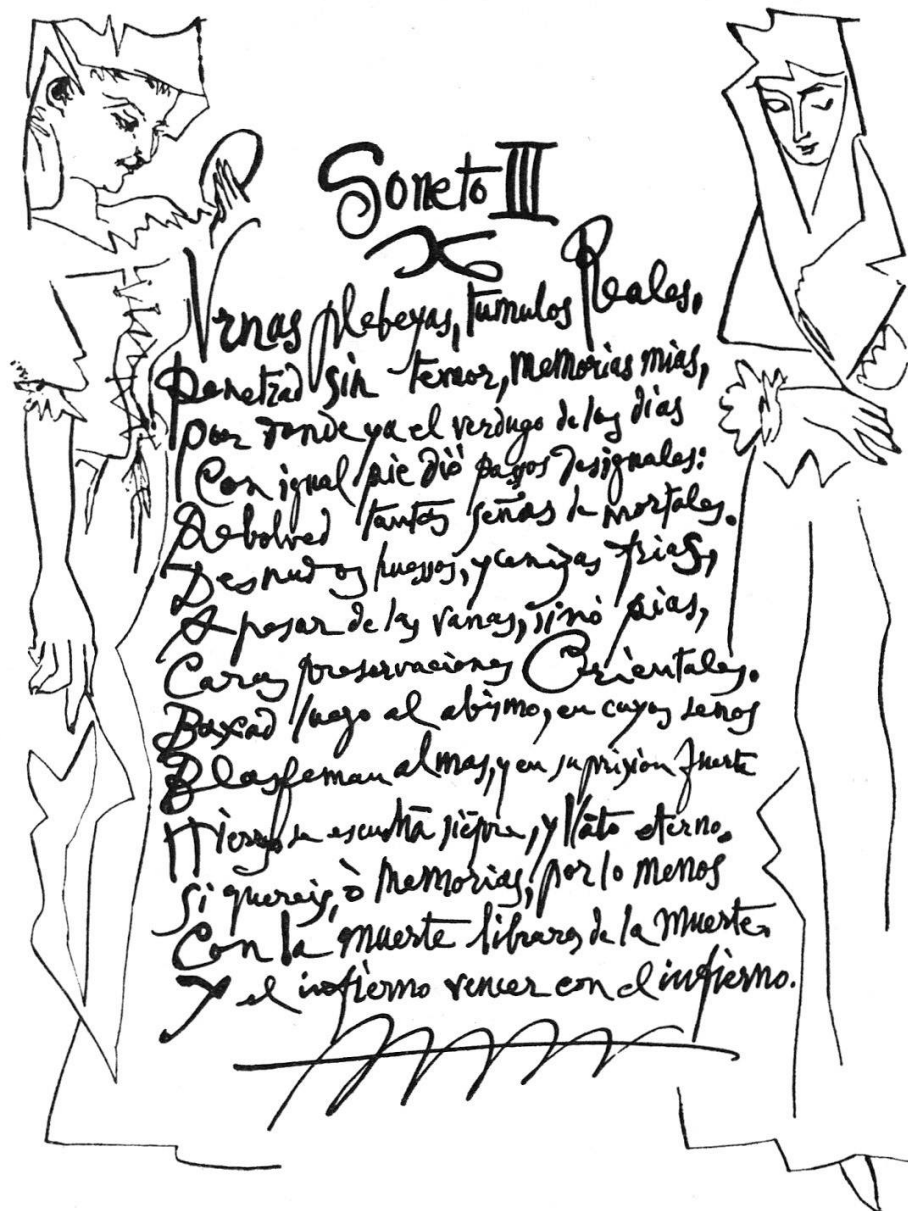 Soneto III
Vrnas plebeyas, tumulos Reales,
Penetrad sin temor, memorias mias,
por donde ya el verdugo de los dias
Con igual pie diò passos desiguales:
Rebolved tantas señas de mortales.
Desnudos huessos, y cenizas frias,
A pesar de las vanas, sinò pias,
Caras preservaciones Orientales.
Baxad luego al abismo, en cuyos senos
Blasfeman almas, y en su prision fuerte
Hierros se escuchā siēpre, y llāto eterno.
si quereis, ò memorias, por lo menos
Con la muerte libraros de la Muerte.
Y el infierno vencer con el infierno.